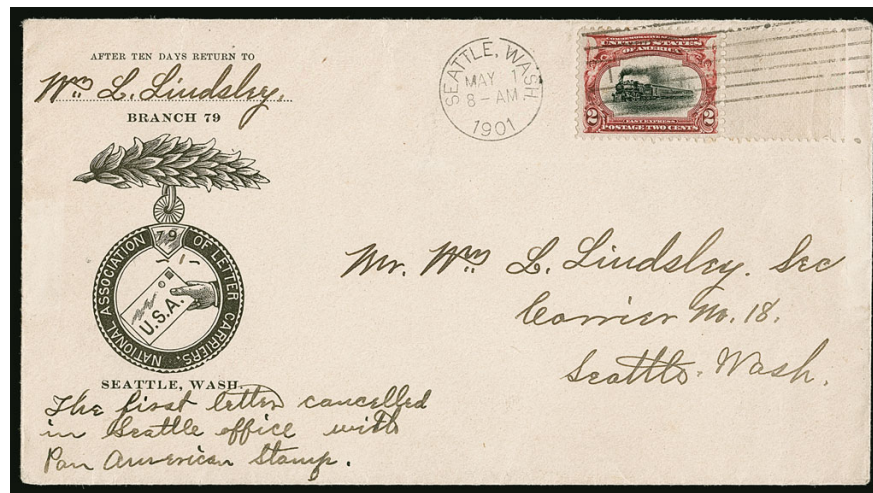 AFTER TEN DAYS RETURN TO
Wm L. Lindsley.
BRANCH 79
79
NATIONAL ASSOCIATION OF LETTER CARRIERS.
U.S.A.
SEATTLE, WASH.
The first letter cancelled
in Seattle office with
Pan American Stamp.
SEATTLE, WASH.
MAY 1
8-AM
1901
UNITED STATES
OF AMERICA
FAST EXPRESS
2 POSTAGE TWO CENTS 2
Mr. Wm L. Lindsley. Sec
Carrier No. 18.
Seattle. Wash.